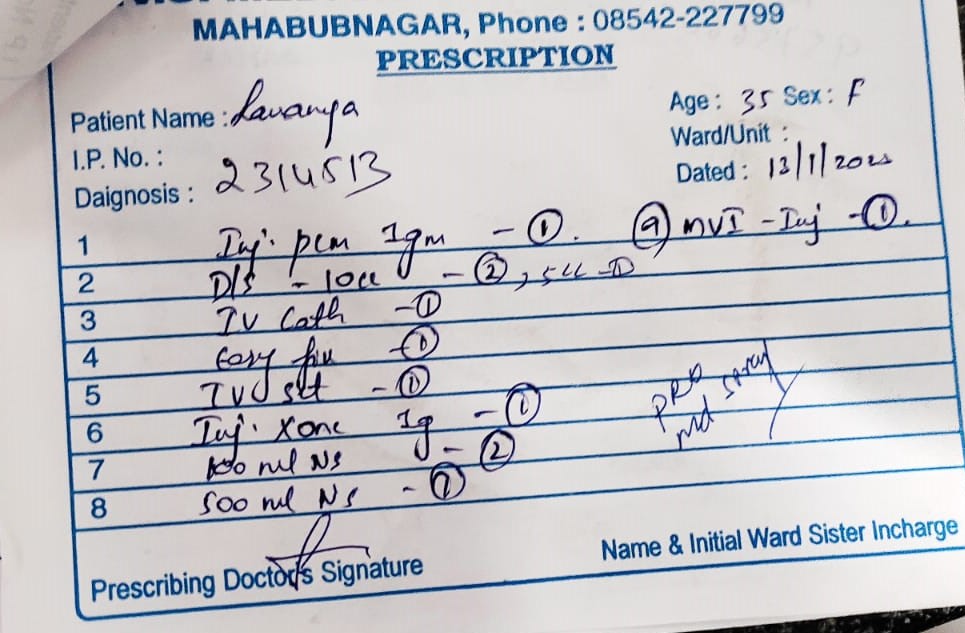 MAHABUBNAGAR, Phone : 08542-227799
PRESCRIPTION
Patient Name : Lavanya
Age : 35 Sex : F
I.P. No. : 2314513
Ward/Unit :
Daignosis :
Dated : 12/1/202
1 Inj. pcm 1gm - 1. 9 MVI - Inj - 1.
2 D/s - 10cc - 2, 5cc - 1
3 IV Cath - 1
4 Easy fix - 1
5 IV set - 1
6 Inj. Xone 1g - 1
7 100 ml NS - 2
8 500 ml NS - 1
PRO
md
Prescribing Doctor's Signature
Name & Initial Ward Sister Incharge